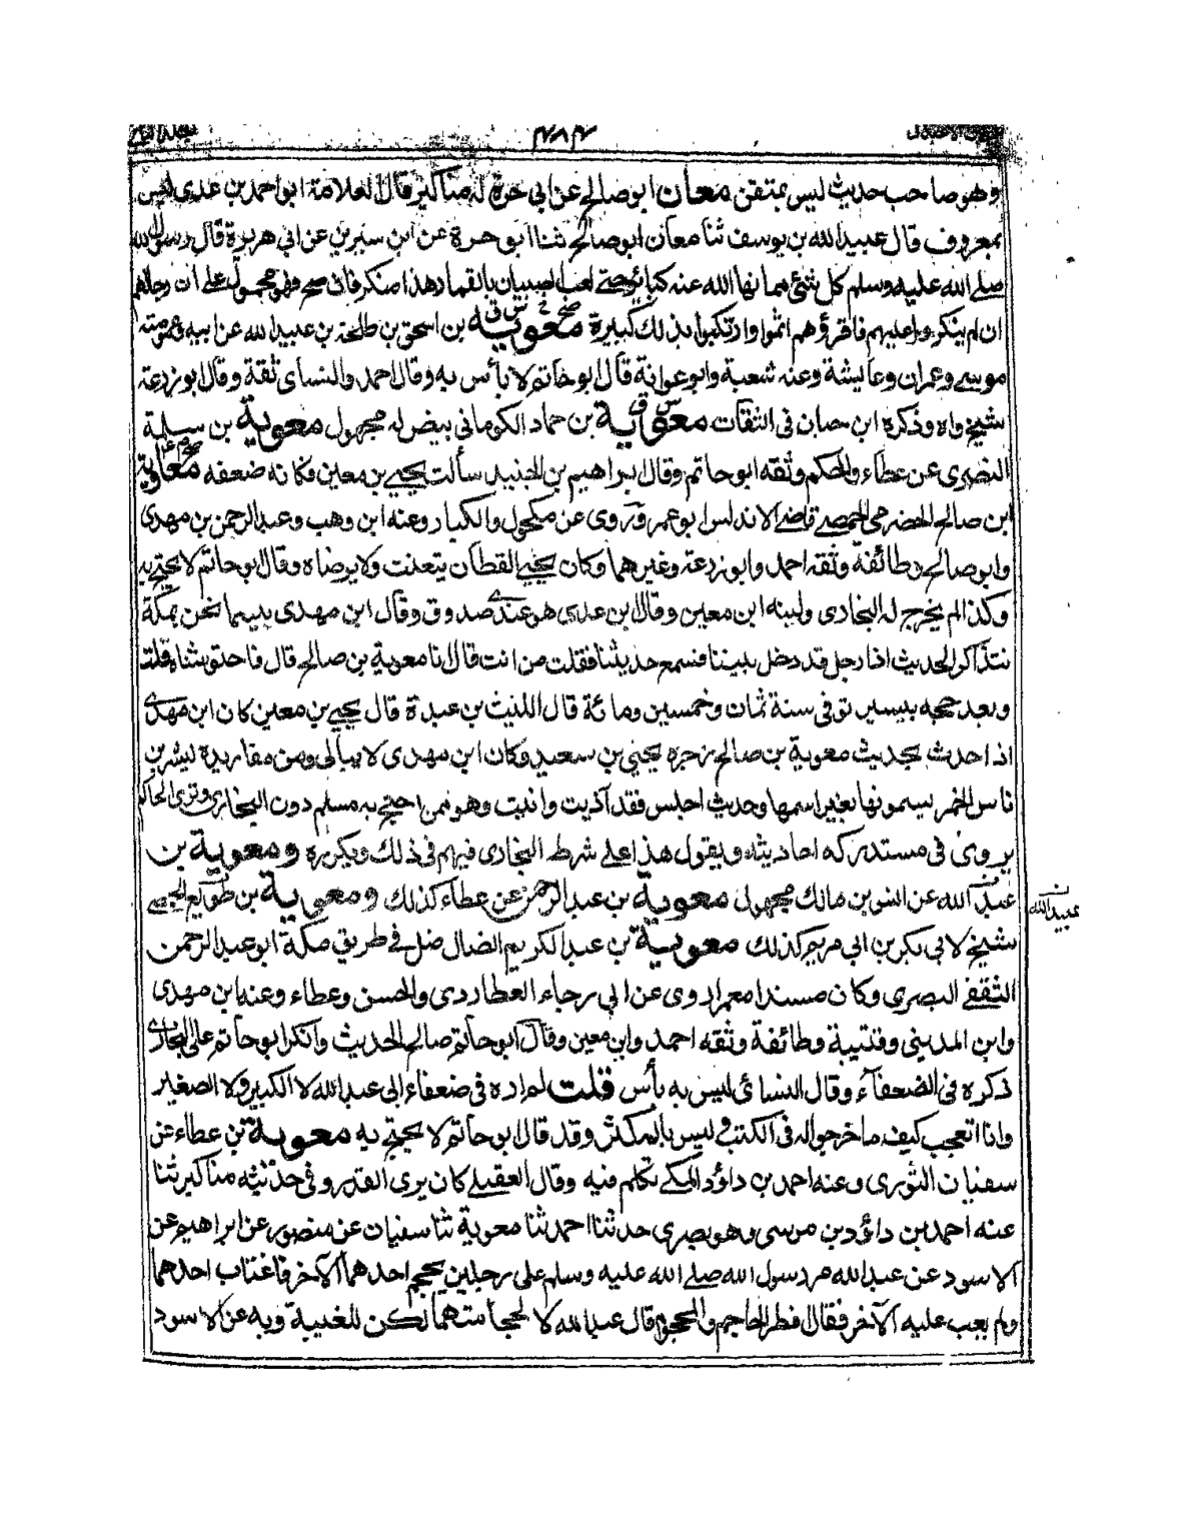 ٤٨٤
وهو صاحب حديث ليس بمتقن معان ابو صالح عن ابى حرة له مناكير قال العلامة ابو احمد بن عدى ليس
بمعروف قال عبيد الله بن يوسف ثنا معان ابو صالح ثنا ابو حرة عن ابن سيرين عن ابى هريرة قال رسول الله
صلى الله عليه وسلم كل شئ مما نها الله عنه كبائر حتى لعب الصبيان بالقمار هذا منكر فان صح فهو محمول على ان رجالهم
ان لم ينكروا عليهم فاقروهم اثموا وارتكبوا بذلك كبيرة معوية بن اسحق بن طلحة بن عبيد الله عن ابيه وعمومته
موسى وعمران وعايشة وعنه شعبة وابو عوانة قال ابو حاتم لا بأس به وقال احمد والنسائى ثقة وقال ابو زرعة
شيخ واه وذكره ابن حبان فى الثقات معوية بن حماد الكرمانى بيض له مجهول معوية بن سلمة
النصرى عن عطاء والحكم وثقه ابو حاتم وقال ابراهيم بن الجنيد سألت يحيى بن معين فكانه ضعفه معاوية
ابن صالح الحضرمى الحمصى قاضى الاندلس ابو عمرو روى عن مكحول والكبار وعنه ابن وهب وعبد الرحمن بن مهدى
وابو صالح وطائفة وثقه احمد وابو زرعة وغيرهما وكان يحيى القطان يتعنت ولا يرضاه وقال ابو حاتم لا يحتج به
وكذا لم يخرج له البخارى ولينه ابن معين وقال ابن عدى هو عندى صدوق وقال ابن مهدى بينما نحن بمكة
نتذاكر الحديث اذا رجل قد دخل بيننا فسمع حديثنا فقلت من انت قال انا معوية بن صالح قال فاحتوشناه قلت
وبعد حجه بيسير توفى سنة ثمان وخمسين ومائة قال الليث بن عبدة قال يحيى بن معين كان ابن مهدى
اذا حدث بحديث معوية بن صالح زجره يحيى بن سعيد وكان ابن مهدى لا يبالى ومن مفاريده ليشربن
ناس الخمر يسمونها بغير اسمها وحديث اجلس فقد آذيت وانيت وهو ممن احتج به مسلم دون البخارى وترى الحاكم
يروى فى مستدركه احاديثه ويقول هذا على شرط البخارى فيهم فى ذلك ويكرره ومعوية بن
عبد الله عن انس بن مالك مجهول معوية بن عبد الرحمن عن عطاء كذلك ومعوية بن طويع الحمصى
عبيد الله
شيخ لابى بكر بن ابى مريم كذلك معوية بن عبد الكريم الضال ضل فى طريق مكة ابو عبد الرحمن
الثقفى البصرى وكان مسندا معمرا روى عن ابى رجاء العطاردى والحسن وعطاء وعنه ابن مهدى
وابن المدينى وقتيبة وطائفة وثقه احمد وابن معين وقال ابو حاتم صالح الحديث وانكر ابو حاتم على البخارى
ذكره فى الضعفاء وقال النسائى ليس به بأس قلت لم اره فى ضعفاء ابى عبد الله لا الكبير ولا الصغير
وانا اتعجب كيف ما خرجوا له فى الكتب وليس بالمكثر وقد قال ابو حاتم لا يحتج به معوية بن عطاء عن
سفيان الثورى وعنه احمد بن داؤد المكى تكلم فيه وقال العقيلى كان يرى القدر وفى حديثه مناكير ثنا
عنه احمد بن داؤد بن موسى وهو بصرى حدثنا احمد ثنا معوية ثنا سفيان عن منصور عن ابراهيم عن
الاسود عن عبد الله مر رسول الله صلى الله عليه وسلم على رجلين يحجم احدهما الآخر فاغتاب احدهما
ولم يعب عليه الآخر فقال افطر الحاجم والمحجوم قال عبد الله لا لحجامتهما لكن للغيبة وبه عن الاسود